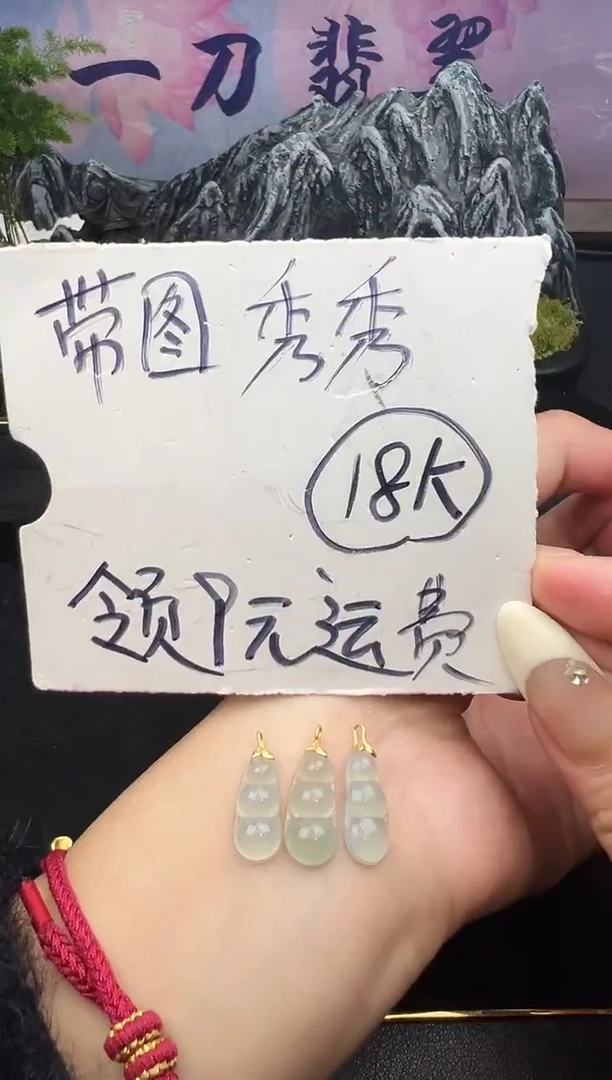 一刀翡翠
带图 秀秀
18K
领9元运费